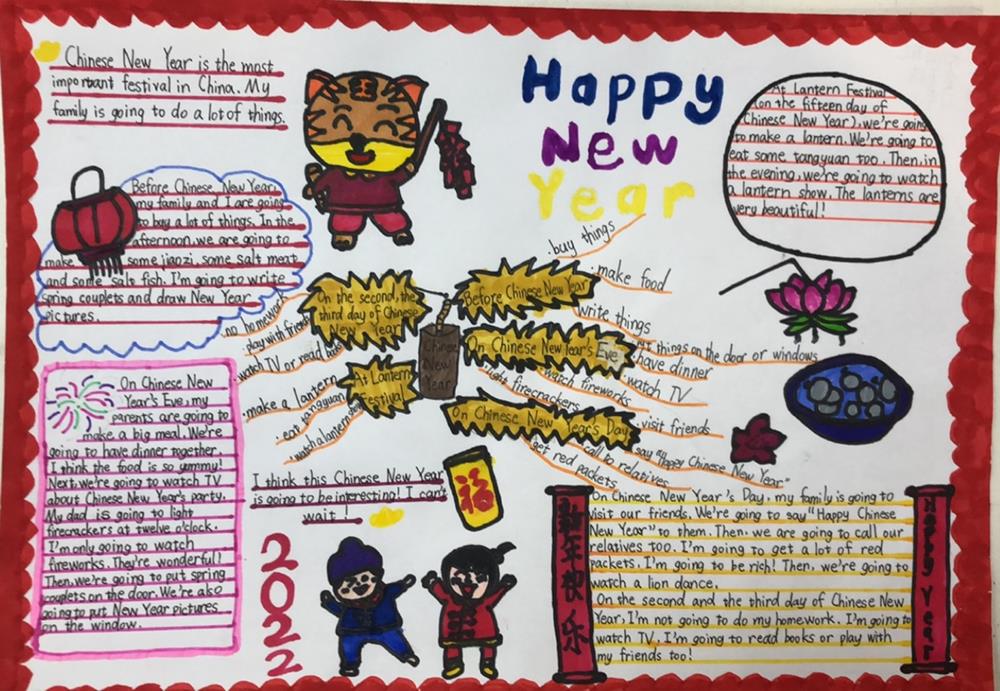 Chinese New Year is the most
important festival in China. My
family is going to do a lot of things.
Happy
New
Year
At Lantern Festival
(on the fifteen day of
Chinese New Year), we're going
to make a lantern. We're going to
eat some tangyuan too. Then, in
the evening, we're going to watch
a lantern show. The lanterns are
very beautiful!
Before Chinese New Year,
my family and I are going
to buy a lot of things. In the
afternoon, we are going to
make some jiaozi, some salt meat
and some salt fish. I'm going to write
spring couplets and draw New Year
pictures.
On the second, the
third day of Chinese
New Year
no homework
play with friends
watch TV or read books
At Lantern
Festival
·make a lantern
·eat tangyuan
·watch a lantern show
Chinese
New
Year
Before Chinese New Year
·buy things
·make food
write things
On Chinese New Year's Eve
put things on the door or windows
have dinner
watch TV
watch fireworks
light firecrackers
On Chinese New Year's Day
visit friends
say "Happy Chinese New Year"
call to relatives
get red packets
On Chinese New
Year's Eve, my
parents are going to
make a big meal. We're
going to have dinner together.
I think the food is so yummy!
Next, we're going to watch TV
about Chinese New Year's party.
My dad is going to light
firecrackers at twelve o'clock.
I'm only going to watch
fireworks. They're wonderful!
Then, we're going to put spring
couplets on the door. We're also
going to put New Year pictures
on the window.
I think this Chinese New Year
is going to be interesting! I can't
wait!
福
2022
新年快乐
On Chinese New Year's Day, my family is going to
visit our friends. We're going to say "Happy Chinese
New Year" to them. Then, we are going to call our
relatives too. I'm going to get a lot of red
packets. I'm going to be rich! Then, we're going to
watch a lion dance.
On the second and the third day of Chinese New
Year, I'm not going to do my homework. I'm going to
watch TV. I'm going to read books or play with
my friends too!
Happy Year